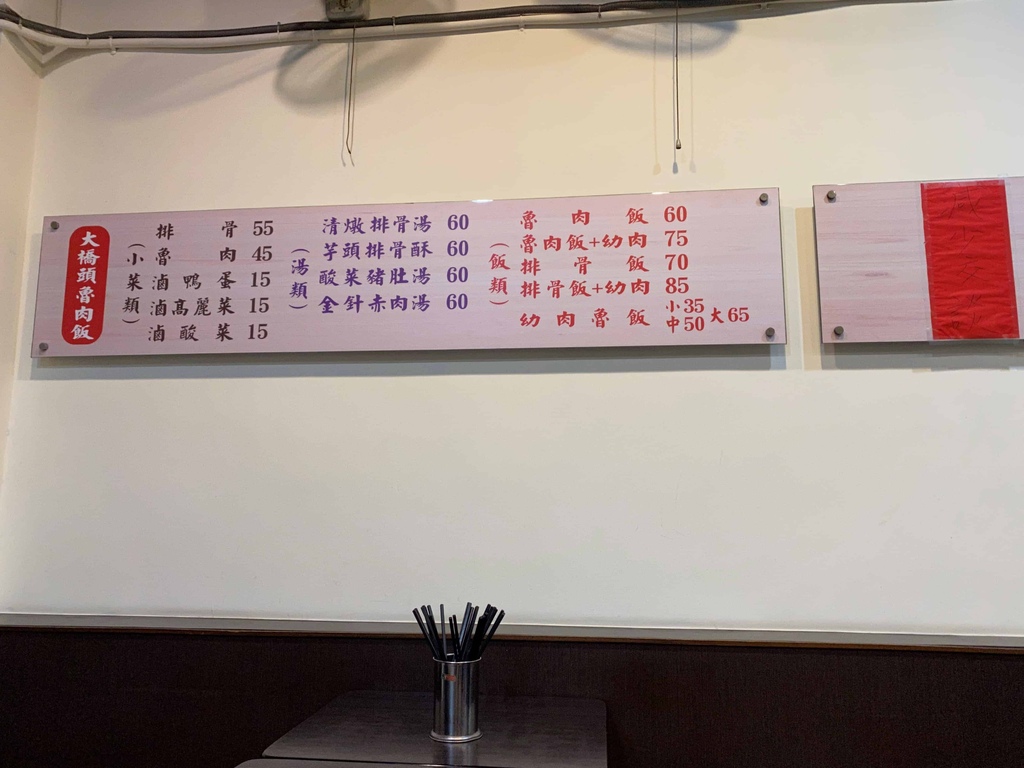 大橋頭魯肉飯
(小菜類)
排骨 55
魯肉 45
滷鴨蛋 15
滷高麗菜 15
滷酸菜 15
(湯類)
清燉排骨湯 60
芋頭排骨酥 60
酸菜豬肚湯 60
金針赤肉湯 60
(飯類)
魯肉飯 60
魯肉飯+幼肉 75
排骨飯 70
排骨飯+幼肉 85
幼肉魯飯 小35 中50 大65